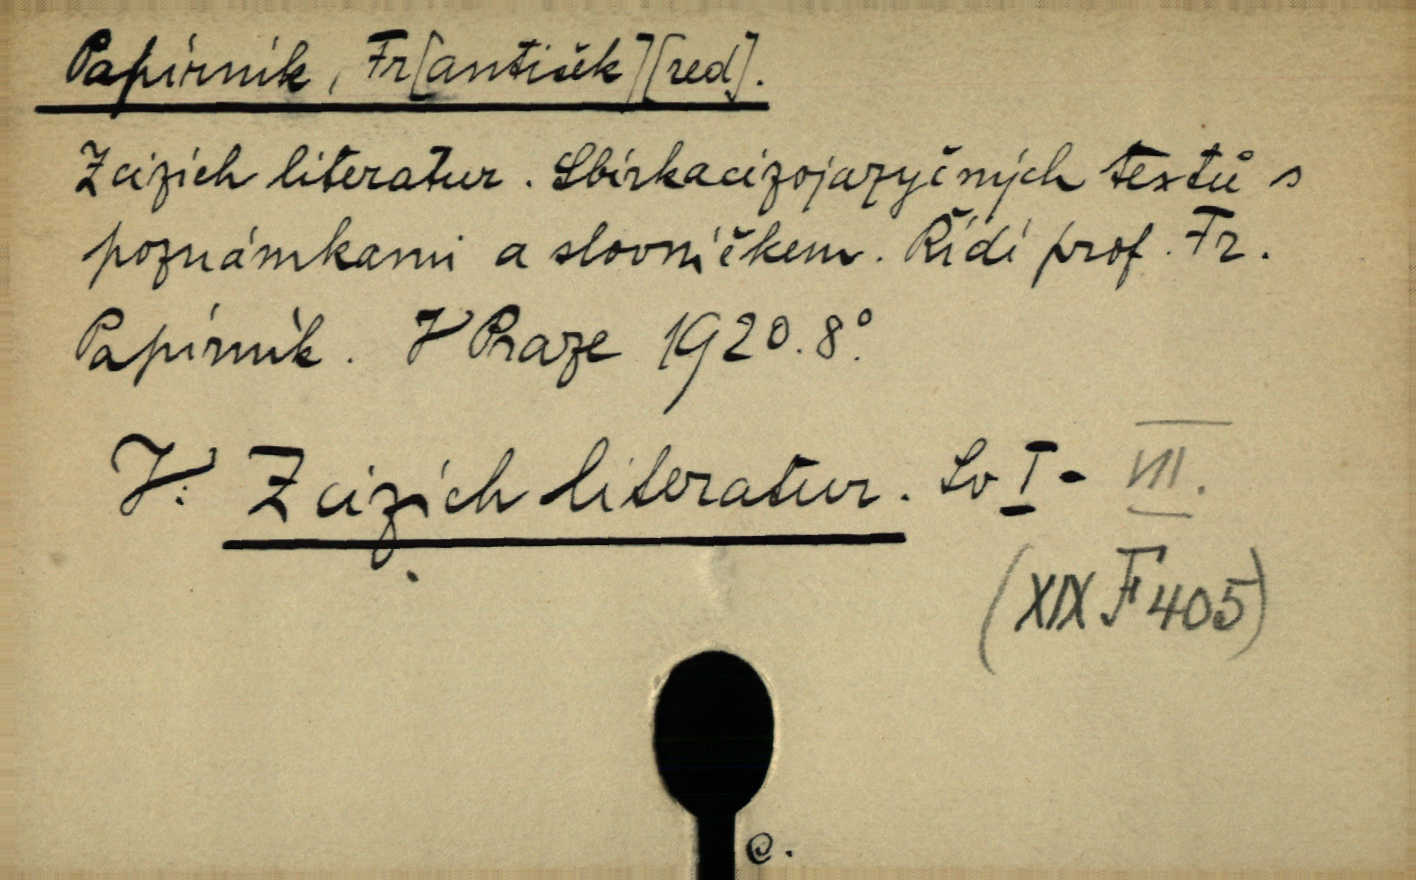 Papírník, Fr[antišek][red].
Z cizích literatur. Sbírka cizojazyčných textů s
poznámkami a slovníčkem. Řídí prof. Fr.
Papírník. V Praze 1920. 8°.
V: Z cizích literatur. Sv I - VII.
(XIX F 405)
C.